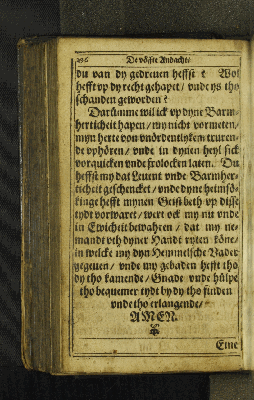 296 De vöffte Andacht/
du van dy gedreuen heffst? Wol
hefft vp dy recht gehapet/ vnde ys tho
schanden geworden?
Darümme wil ick vp dyne Barm-
herticheit hapen/ my nicht vormeten/
myn herte von vnördentlykem truren-
de vphören/ vnde in dynen heyl sick
vorquicken vnde frolocken laten. Du
heffst my dat Leuent vnde Barmher-
ticheit geschencket/ vnde dyne heimsö-
kinge hefft mynen Geist beth vp disse
tydt vorwaret/ wert ock my nu vnde
in Ewicheit bewahren/ dat my ne-
mandt vth dyner Handt ryten köne/
in welcke my dyn Hemmelsche Vader
gegeuen/ vnde my gebaden hefft tho
dy tho kamende/ Gnade vnde hülpe
tho bequemer tydt by dy tho finden
vnde tho erlangende/
AMEN.
Eine